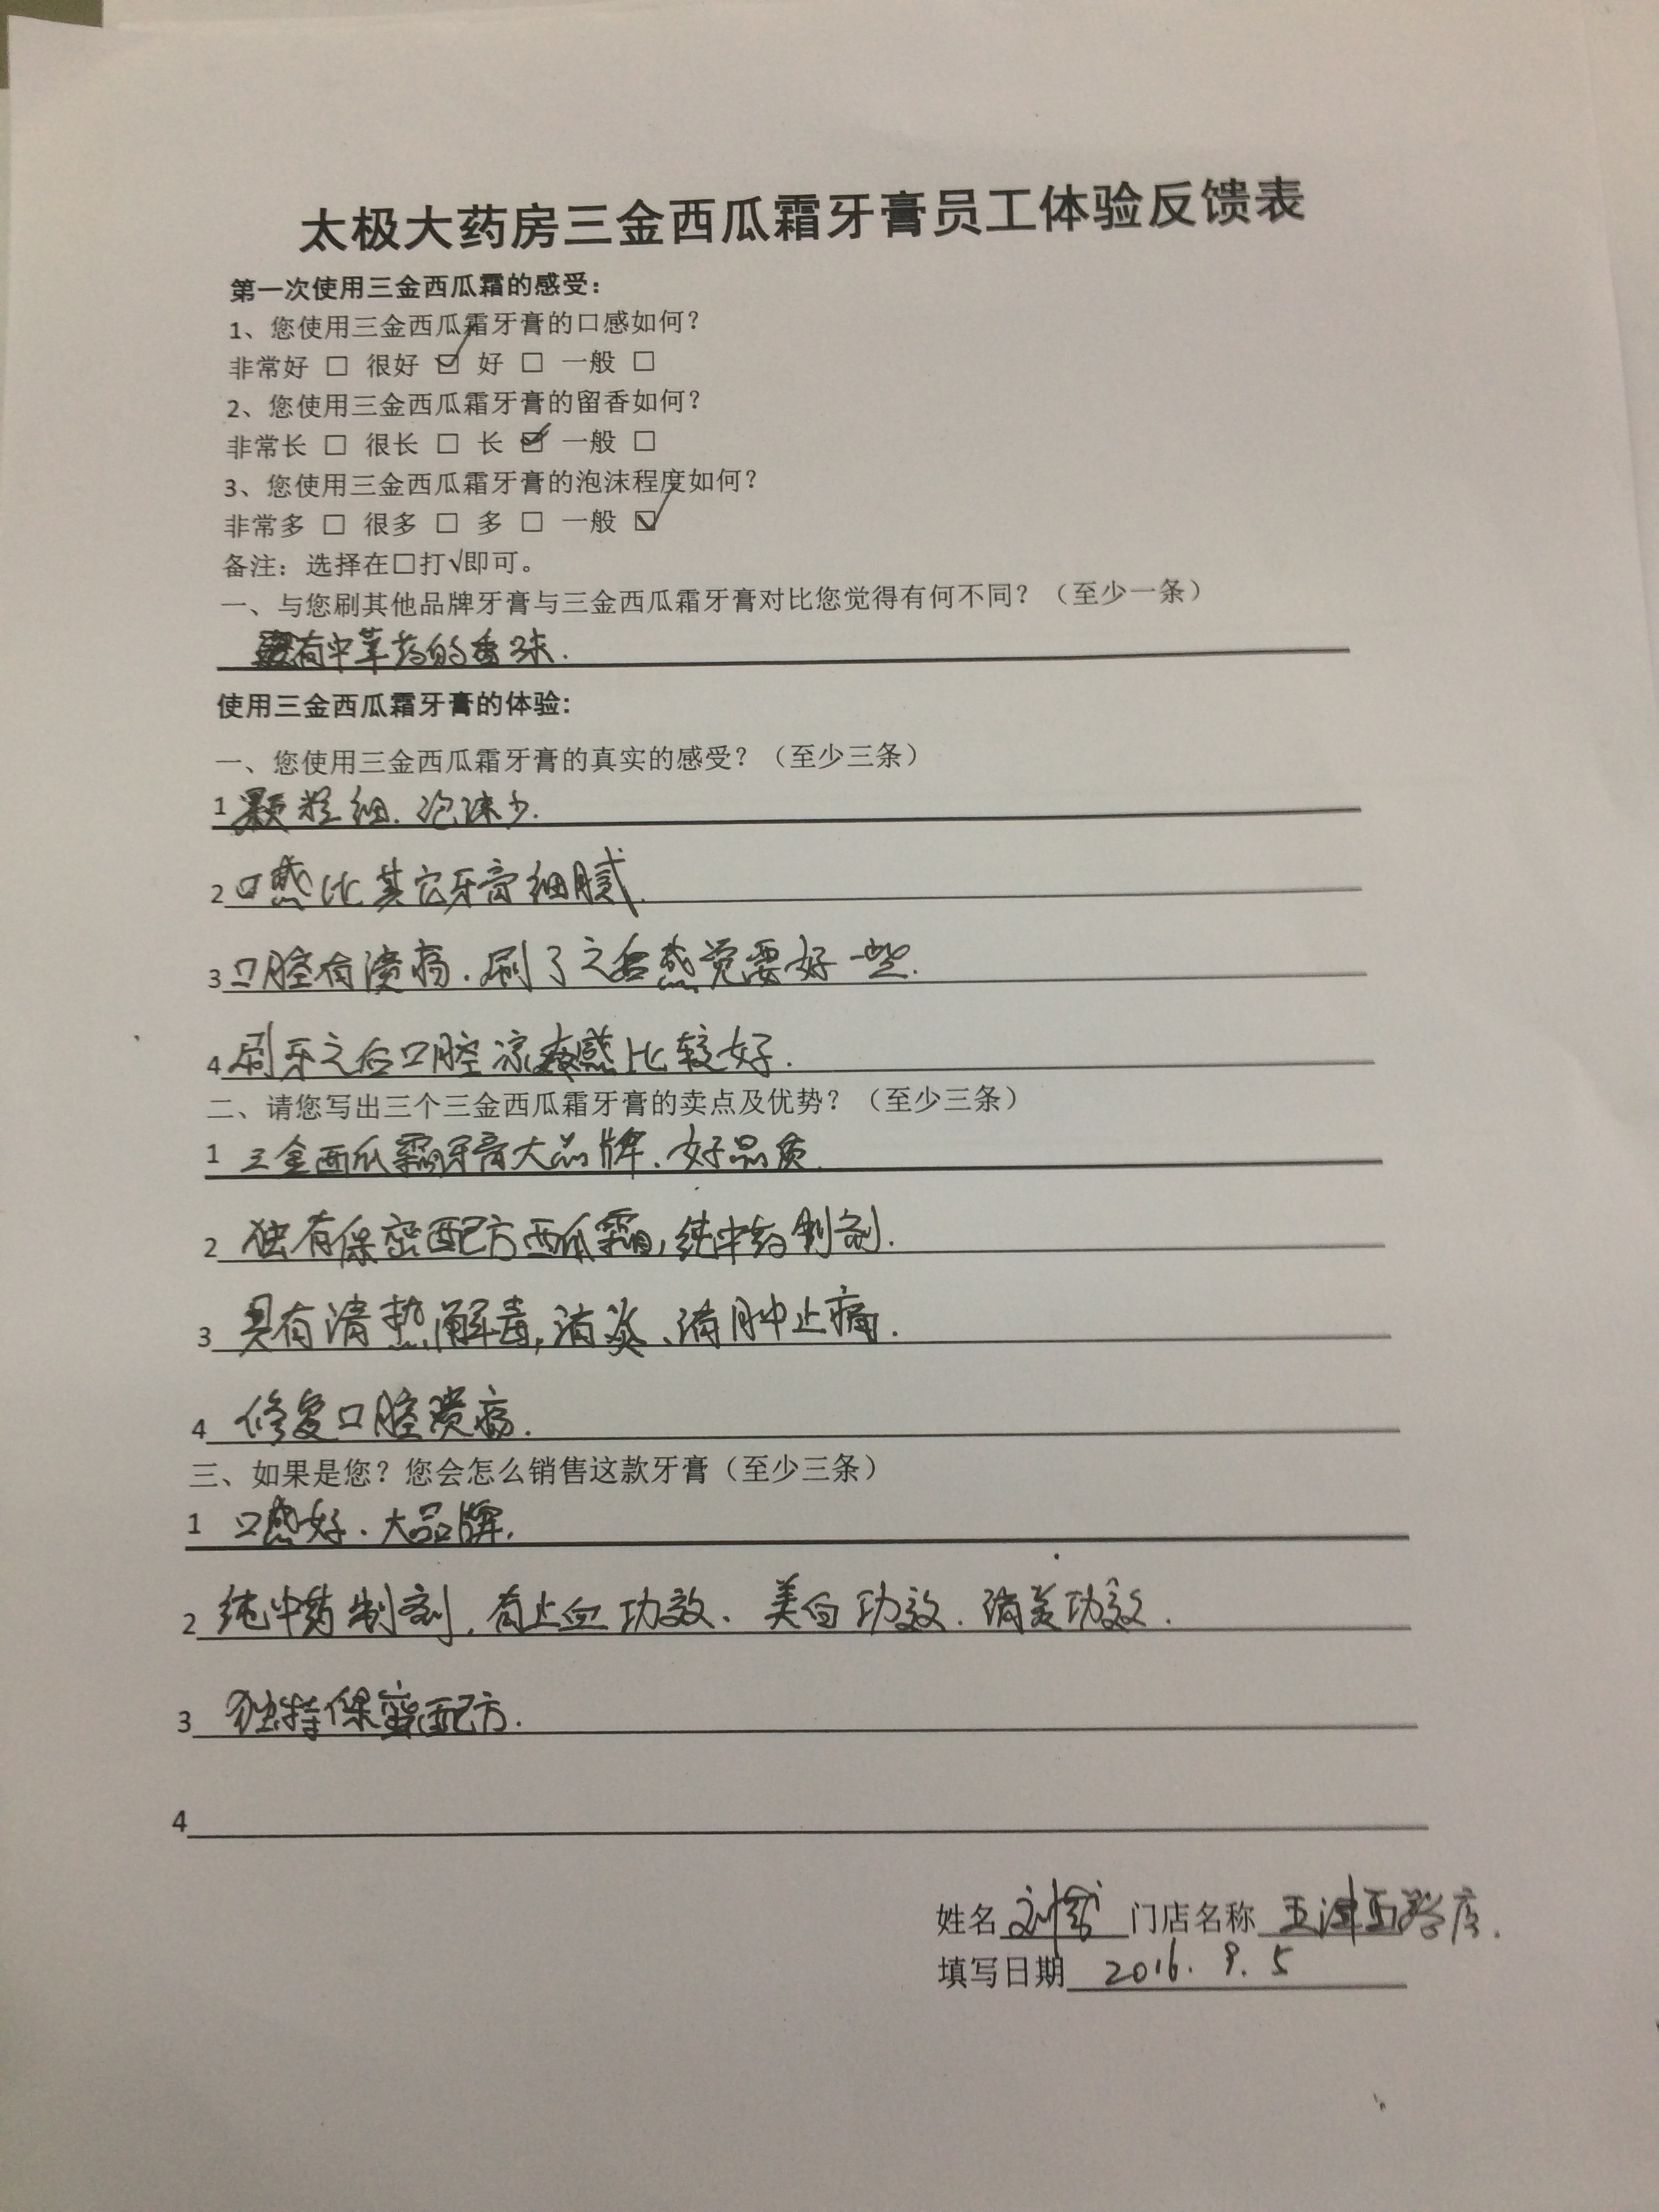 太极大药房三金西瓜霜牙膏员工体验反馈表
第一次使用三金西瓜霜的感受：
1、您使用三金西瓜霜牙膏的口感如何？
非常好 □ 很好 ☑ 好 □ 一般 □
2、您使用三金西瓜霜牙膏的留香如何？
非常长 □ 很长 □ 长 ☑ 一般 □
3、您使用三金西瓜霜牙膏的泡沫程度如何？
非常多 □ 很多 □ 多 □ 一般 ☑
备注：选择在□打√即可。
一、与您刷其他品牌牙膏与三金西瓜霜牙膏对比您觉得有何不同？（至少一条）
有中草药的香味.
使用三金西瓜霜牙膏的体验:
一、您使用三金西瓜霜牙膏的真实的感受？（至少三条）
1 颗粒细. 泡沫少.
2 口感比其它牙膏细腻.
3 口腔有溃疡. 刷了之后感觉要好一些.
4 刷牙之后口腔凉爽感比较好.
二、请您写出三个三金西瓜霜牙膏的卖点及优势？（至少三条）
1 三金西瓜霜牙膏大品牌、好品质.
2 独有保密配方西瓜霜,纯中药制剂.
3 具有清热解毒,消炎、消肿止痛.
4 修复口腔溃疡.
三、如果是您？您会怎么销售这款牙膏（至少三条）
1 口感好. 大品牌.
2 纯中药制剂, 有止血功效、美白功效. 消炎功效.
3 独特保密配方.
4
姓名 刘 门店名称 五津西路店.
填写日期 2016. 9. 5